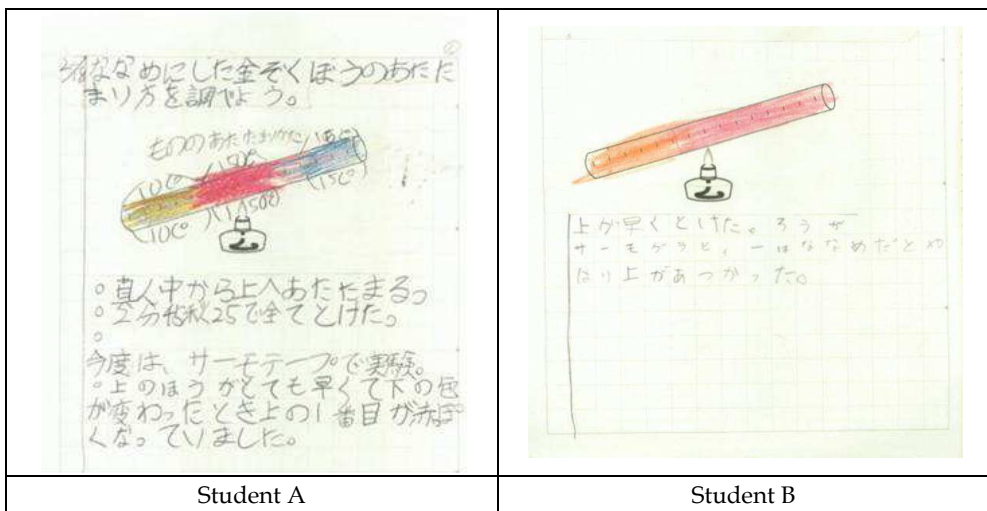 ななめにした金ぞくぼうのあたた
まり方を調べよう。
もののあたたまりかた
150°
100°
15°
(100°)
(1500)
(150)
。真ん中から上へあたたまる。
25で全てとけた。
。
今度は、サーモテープで実験。
。上のほうがとても早くて下の色
が変わったとき上の1番目が赤ぽ
くなっていました。
上が早くとけた。ろうが
サーモグラヒィーはななめだとや
はり上があつかった。
Student A
Student B